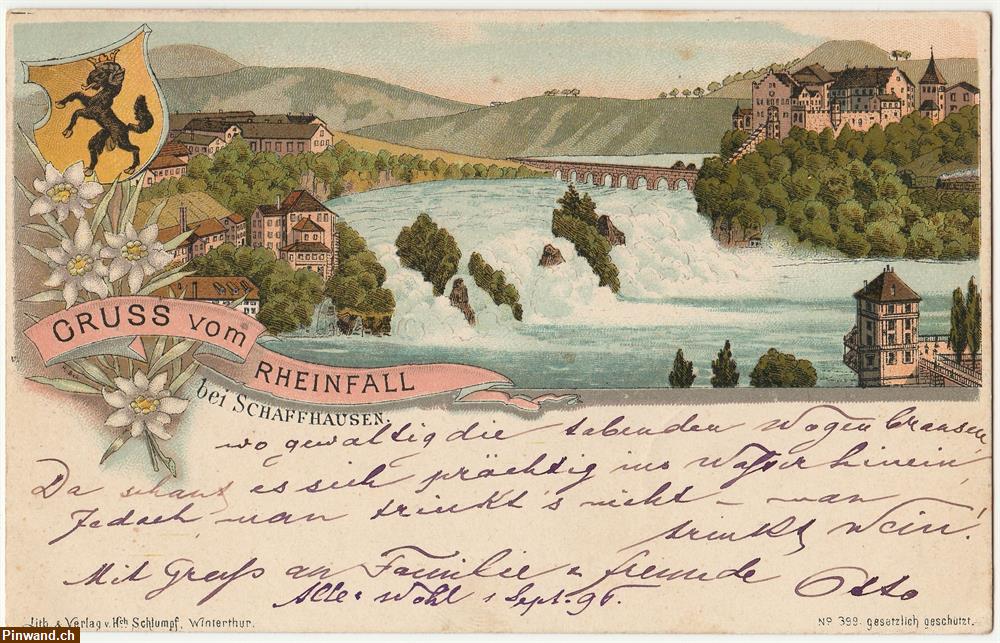 GRUSS vom
RHEINFALL
bei SCHAFFHAUSEN.
wo gewaltig die tobenden Wogen brausen,
Da schaut es sich prächtig ins Wasser hinein,
Jedoch man trinkt's nicht – man
trinkt Wein!
Mit Gruß an Familie u freunde Otto
Alle wohl 1 Sept. 96.
Lith. & Verlag v. Hch Schlumpf, Winterthur.
No 399. gesetzlich geschützt.
Pinwand.ch